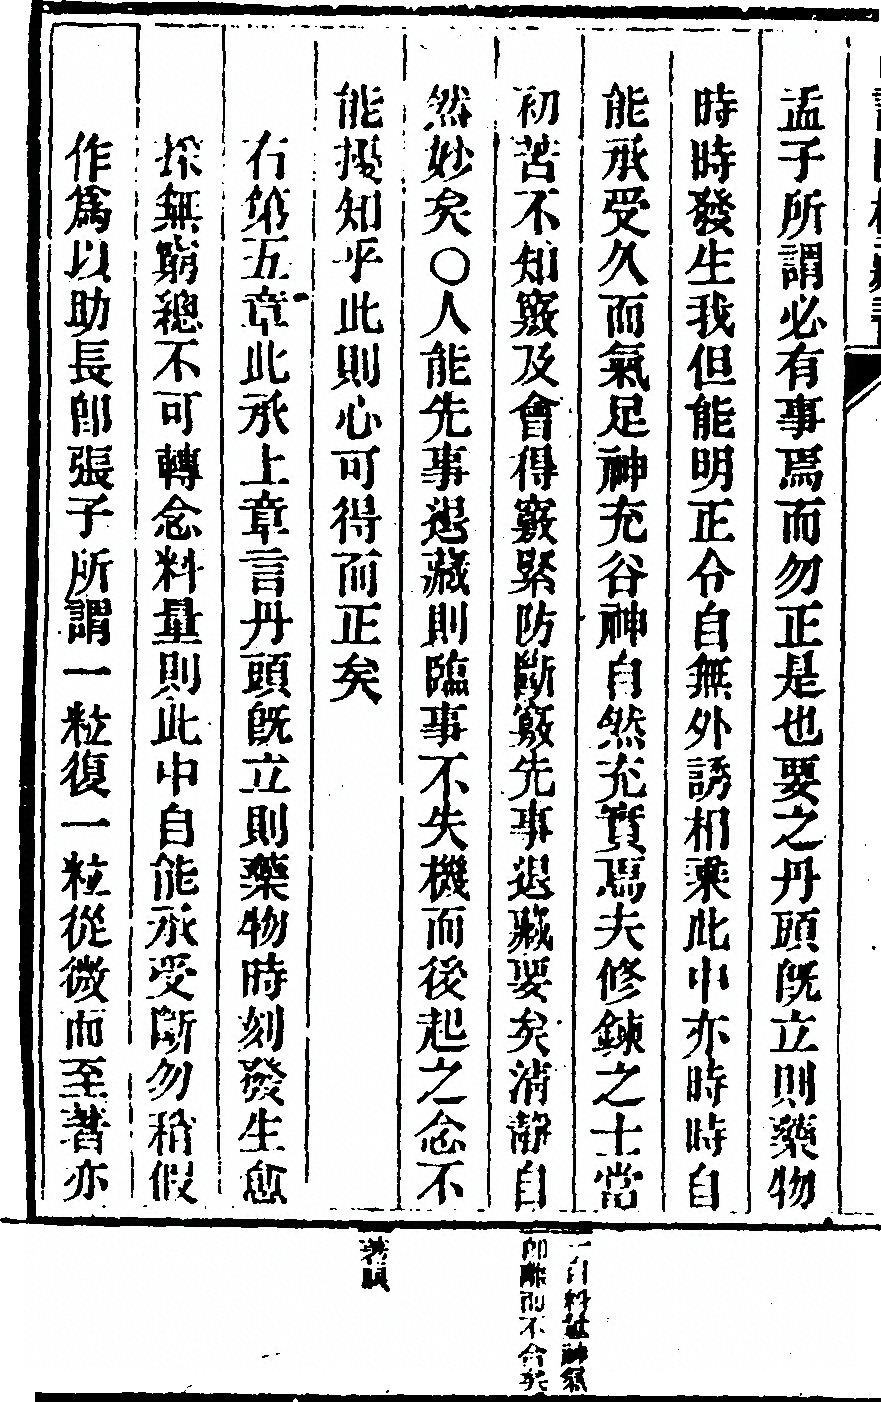 孟子所謂必有事焉而勿正是也要之丹頭既立則藥物
時時發生我但能明正令自無外誘相乘此中亦時時自
能承受久而氣足神充谷神自然充實焉夫修鍊之士當
初苦不知竅及會得竅緊防斷竅先事退藏要矣清靜自
然妙矣○人能先事退藏則臨事不失機而後起之念不
能擾知乎此則心可得而正矣
右第五章此承上章言丹頭既立則藥物時刻發生愈
採無窮總不可轉念料量則此中自能承受斷勿稍假
作爲以助長卽張子所謂一粒復一粒從微而至著亦
料量神氣
卽離而不合矣
著眼